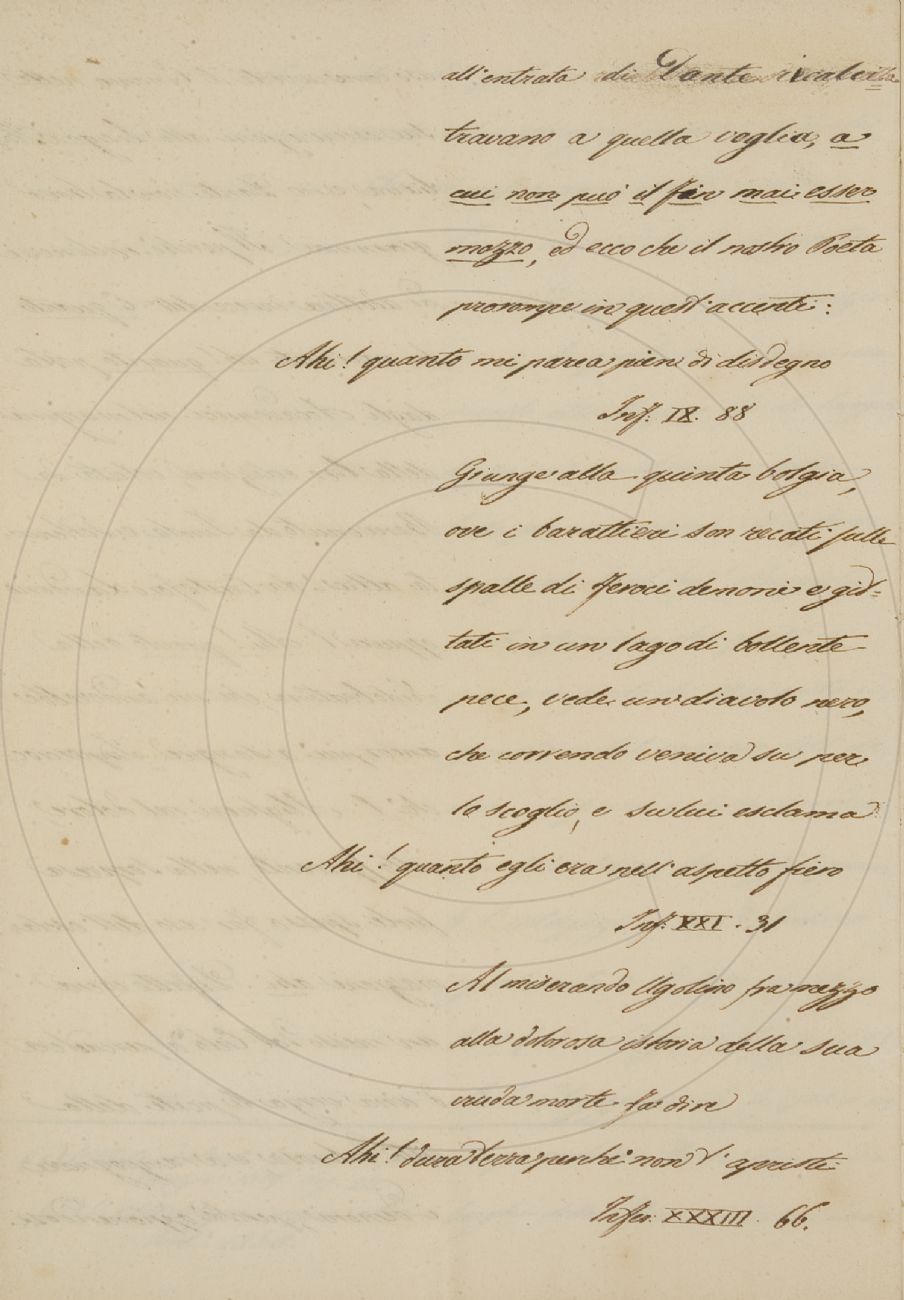 all'entrata di Dante ricalci
travano a quella voglia, a
cui non può il fin mai esser
mozzo, ed ecco che il nostro Poeta
prorompe in questi accenti:
Ahi! quanto mi parea pien di disdegno
Inf. IX. 88
Giunge alla quinta bolgia,
ove i barattieri son recati sulle
spalle di feroci demoni e git-
tati in un lago di bollente
pece, vede un diavolo nero,
che correndo veniva su per
lo scoglio, e su lui esclama
Ahi! quanto egli era nell'aspetto fiero
Inf. XXI. 31
Al miserando Ugolino fra mezzo
alla dolorosa istoria della sua
cruda morte fa dire
Ahi! dura terra perché non t'apristi
Infer. XXXIII. 66.